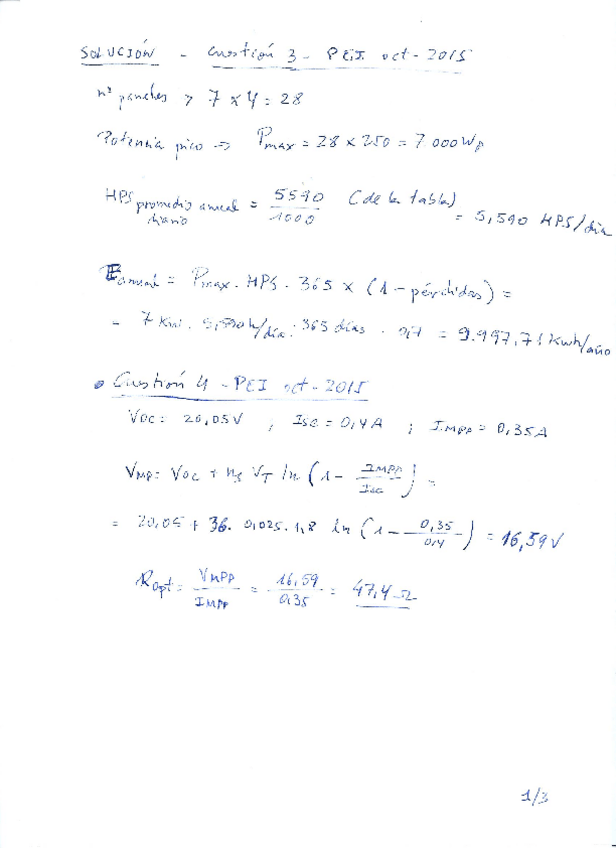 SOLUCIÓN - Cuestión 3 - PEI oct-2015
nº paneles → 7 x 4 = 28
Potencia pico => Pmax = 28 x 250 = 7.000 Wp
HPS promedio anual diario = 5590 / 1000 (de la tabla) = 5,590 HPS/día
Eanual = Pmax . HPS . 365 x (1 - pérdidas) =
= 7 Kw . 5,590 h/día . 365 días . 0,7 = 9.997,71 Kwh/año
• Cuestión 4 - PEI oct-2015
VOC = 20,05V ; ISC = 0,4A ; IMPP = 0,35A
VMP = VOC + ns VT ln (1 - IMPP / ISC) =
= 20,05 + 36 . 0,025 . 1,8 ln (1 - 0,35 / 0,4) = 16,59V
Ropt = VMPP / IMPP = 16,59 / 0,35 = 47,4 Ω
1/3